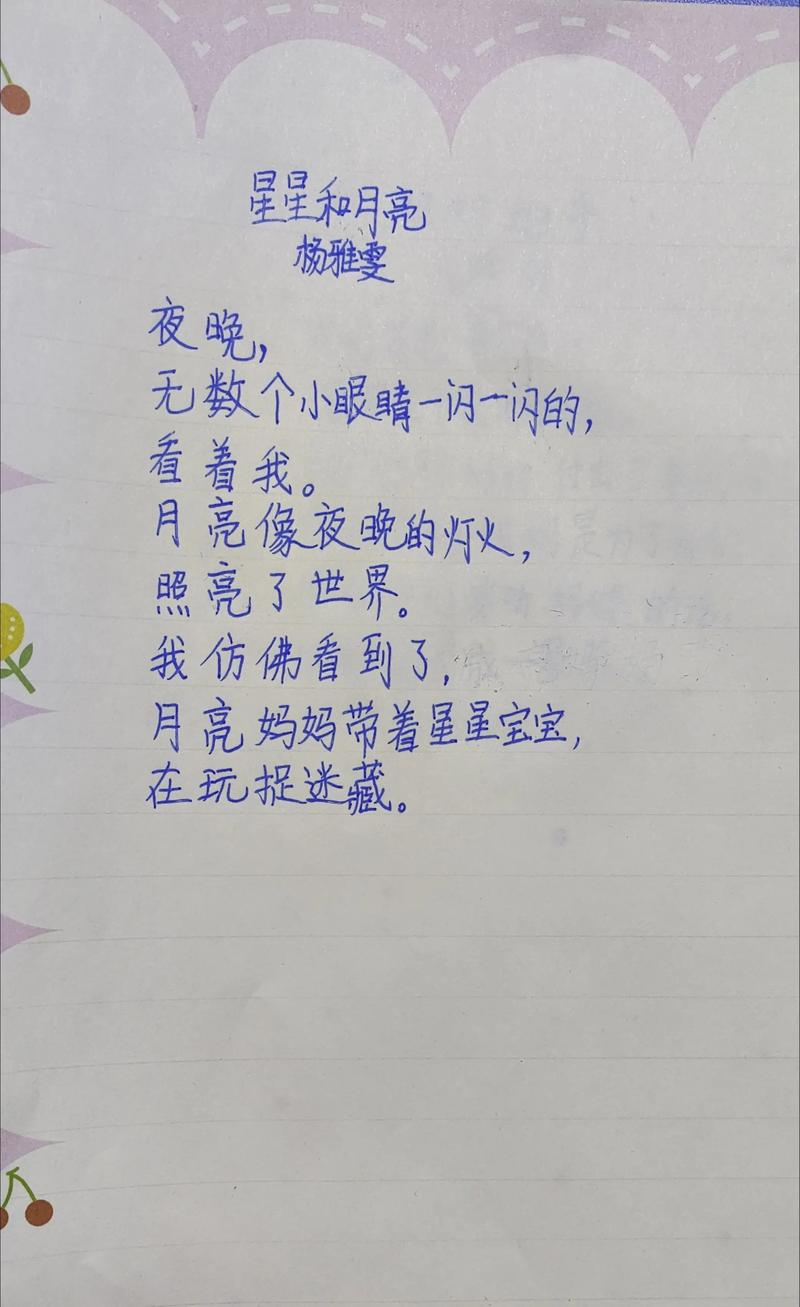 星星和月亮
杨雅雯
夜晚，
无数个小眼睛一闪一闪的，
看着我。
月亮像夜晚的灯火，
照亮了世界。
我仿佛看到了，
月亮妈妈带着星星宝宝，
在玩捉迷藏。